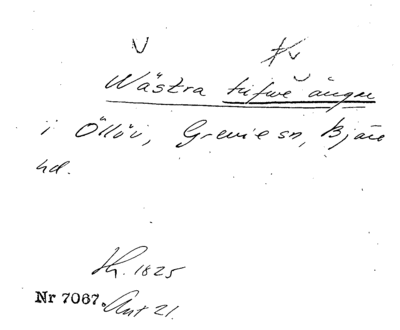 V Kv
Wästra tufwe ängen
i Öllöv, Grevie sn, Bjäre
hd.
Th. 1825
Nr 7067. Akt 21.